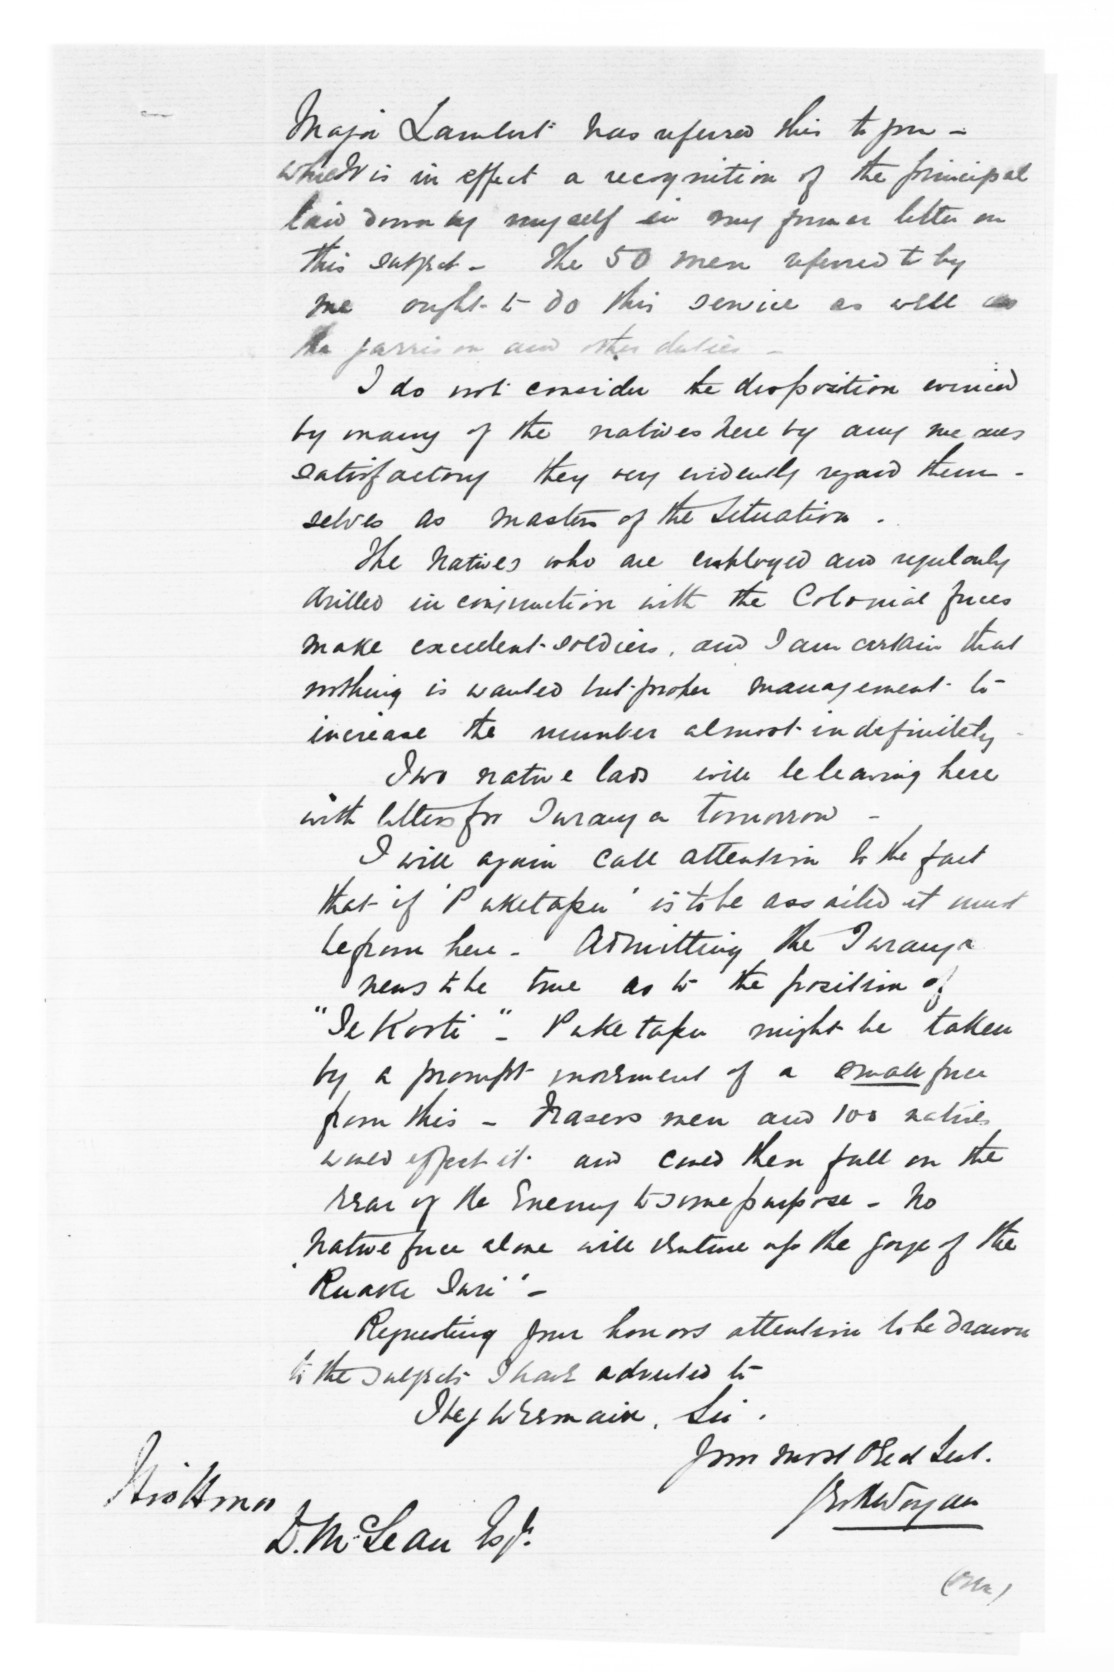 Major Lambert has referred this to you –
which is in effect a recognition of the principal
laid down by myself in my former letter on
this subject – The 50 men referred to by
me ought to do this service as well as
the garrison and other duties –
I do not consider the disposition evinced
by many of the natives here by any means
satisfactory they very evidently regard them-
selves as masters of the situation.
The Natives who are employed and regularly
drilled in conjunction with the Colonial forces
make excellent soldiers, and I am certain that
nothing is wanted but proper management to
increase the number almost indefinitely –
Two native lads will be leaving here
with letters for Turanga tomorrow –
I will again call attention to the fact
that if 'Puketapu' is to be assailed it must
be from here – Admitting the Turanga
news to be true as to the position of
"Te Kooti" – Puketapu might be taken
by a prompt movement of a small force
from this – Frasers men and 100 natives
would effect it and could then fall on the
rear of the Enemy to some purpose – No
Native force alone will venture up the gorge of the
'Ruake Turi' –
Requesting your honors attention to be drawn
to the subjects I have adverted to
I beg to remain, Sir.
Your most Obed Sert.
His Honor
D. McLean Esqr.
(over)